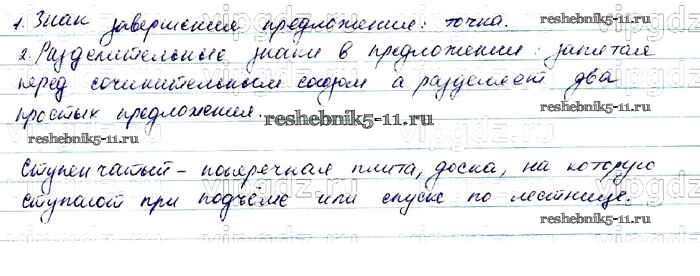 1. Знак завершения предложения: точка.
2. Разделительные знаки в предложении: запятая
перед сочинительным союзом а разделяет два
простых предложения.
reshebnik5-11.ru
reshebnik5-11.ru
Ступенчатый - поперечная плита, доска, на которую
ступают при подъёме или спуске по лестнице.
reshebnik5-11.ru
vipgdz.ru